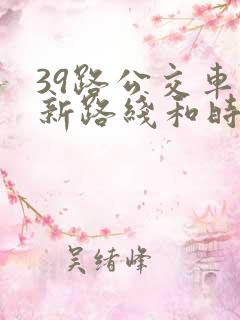 39路公交车
新路綫和時
吴绪峰